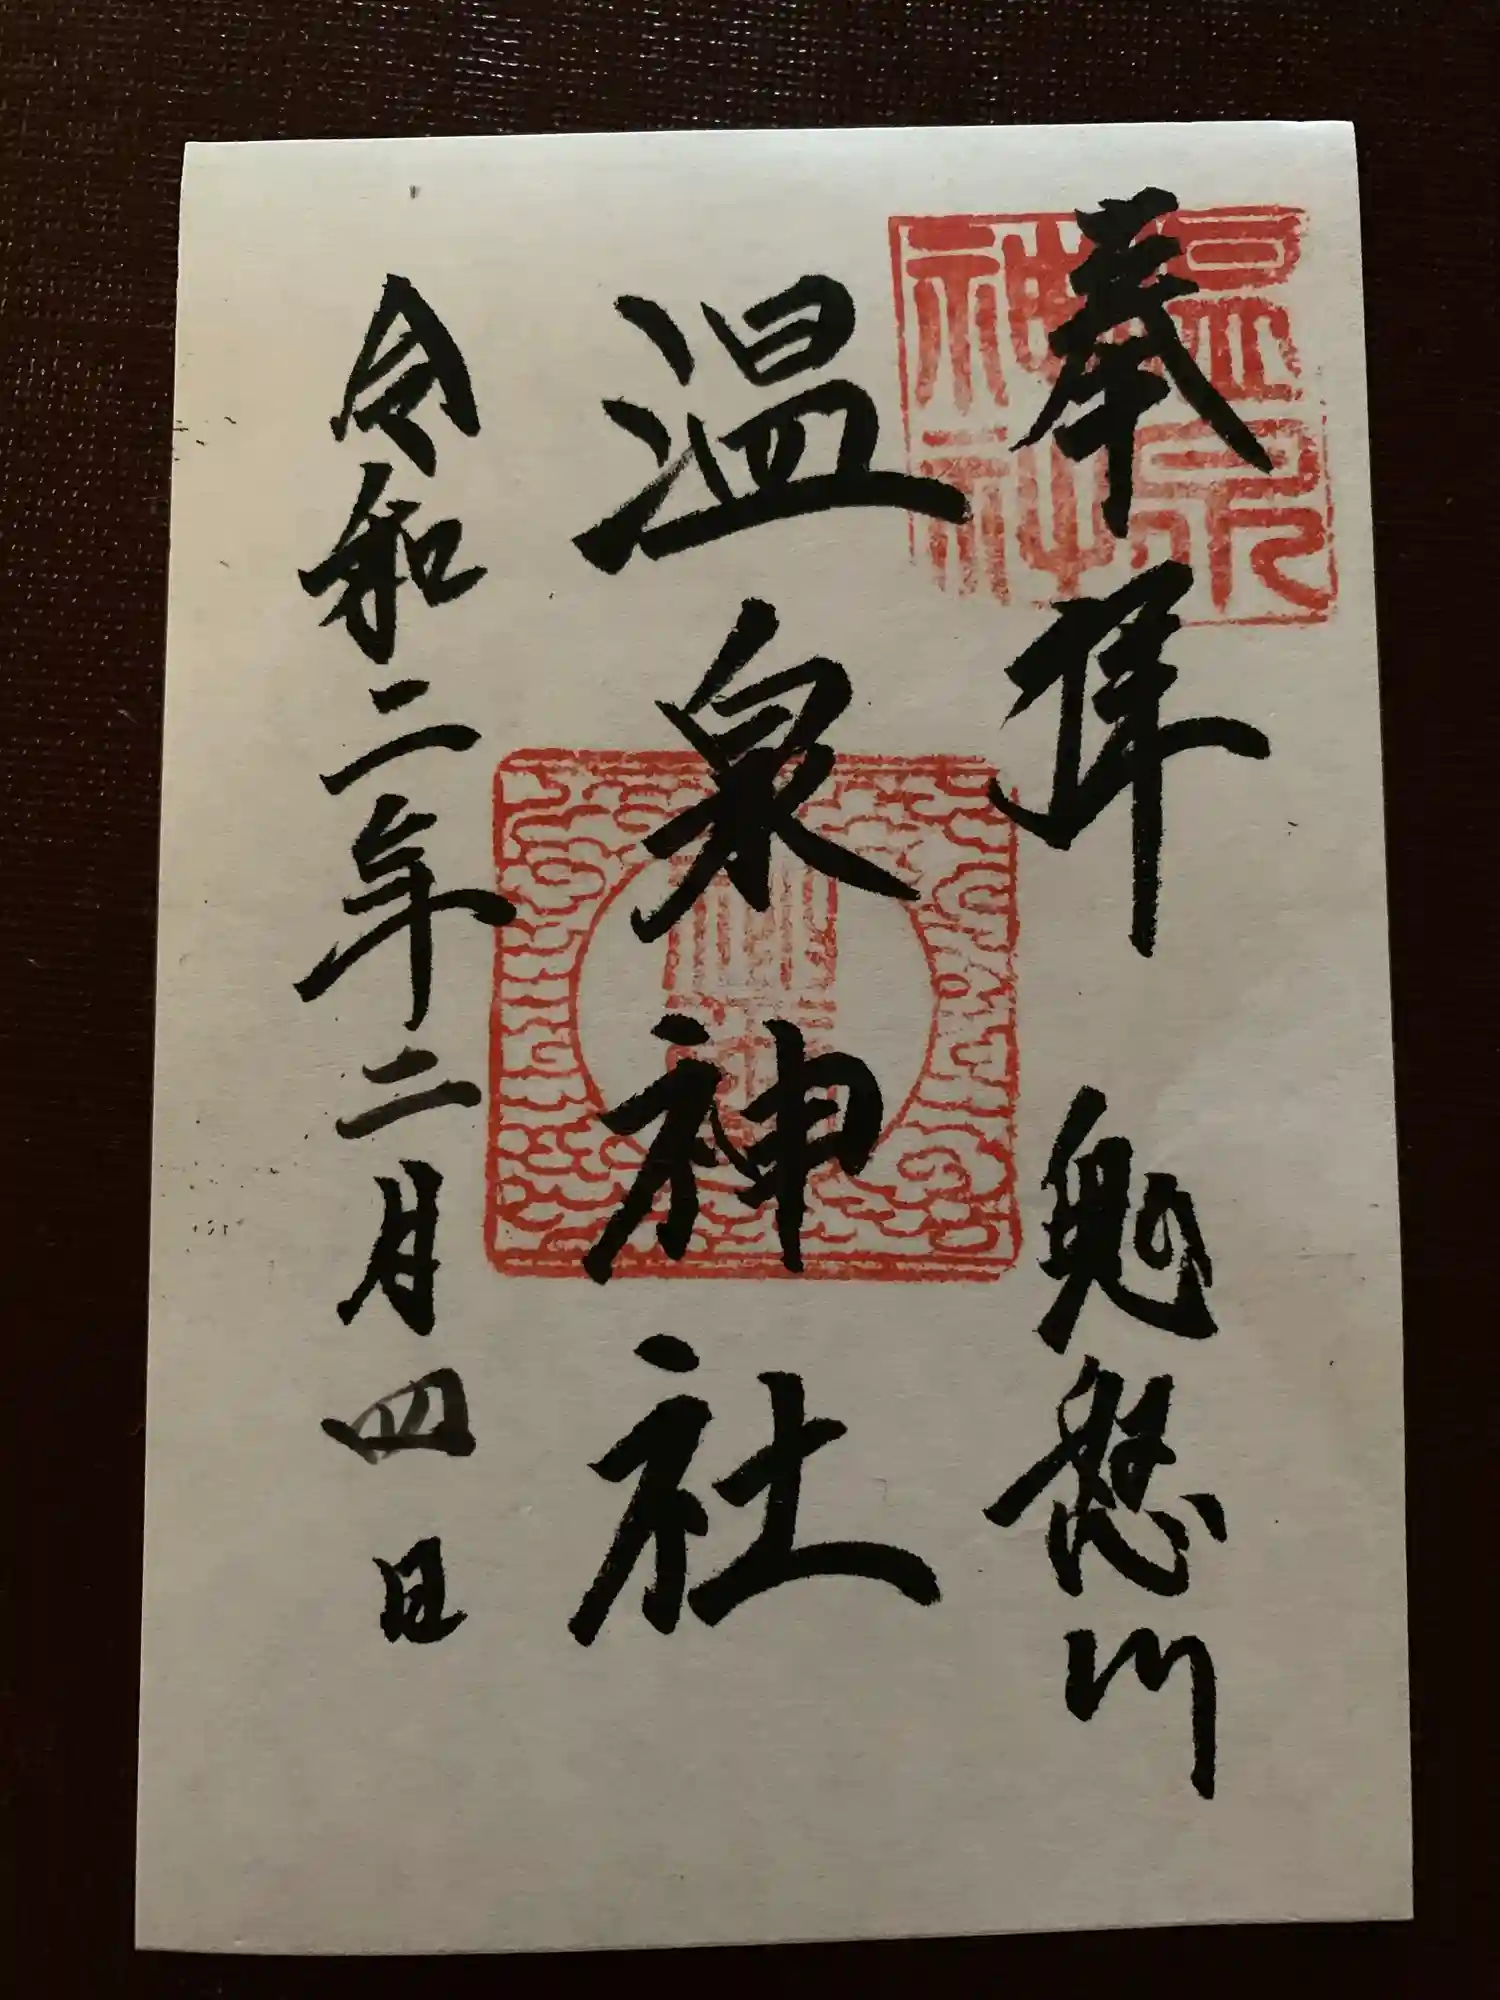 温泉
神社
奉拝 鬼怒川
温泉神社
令和二年二月四日